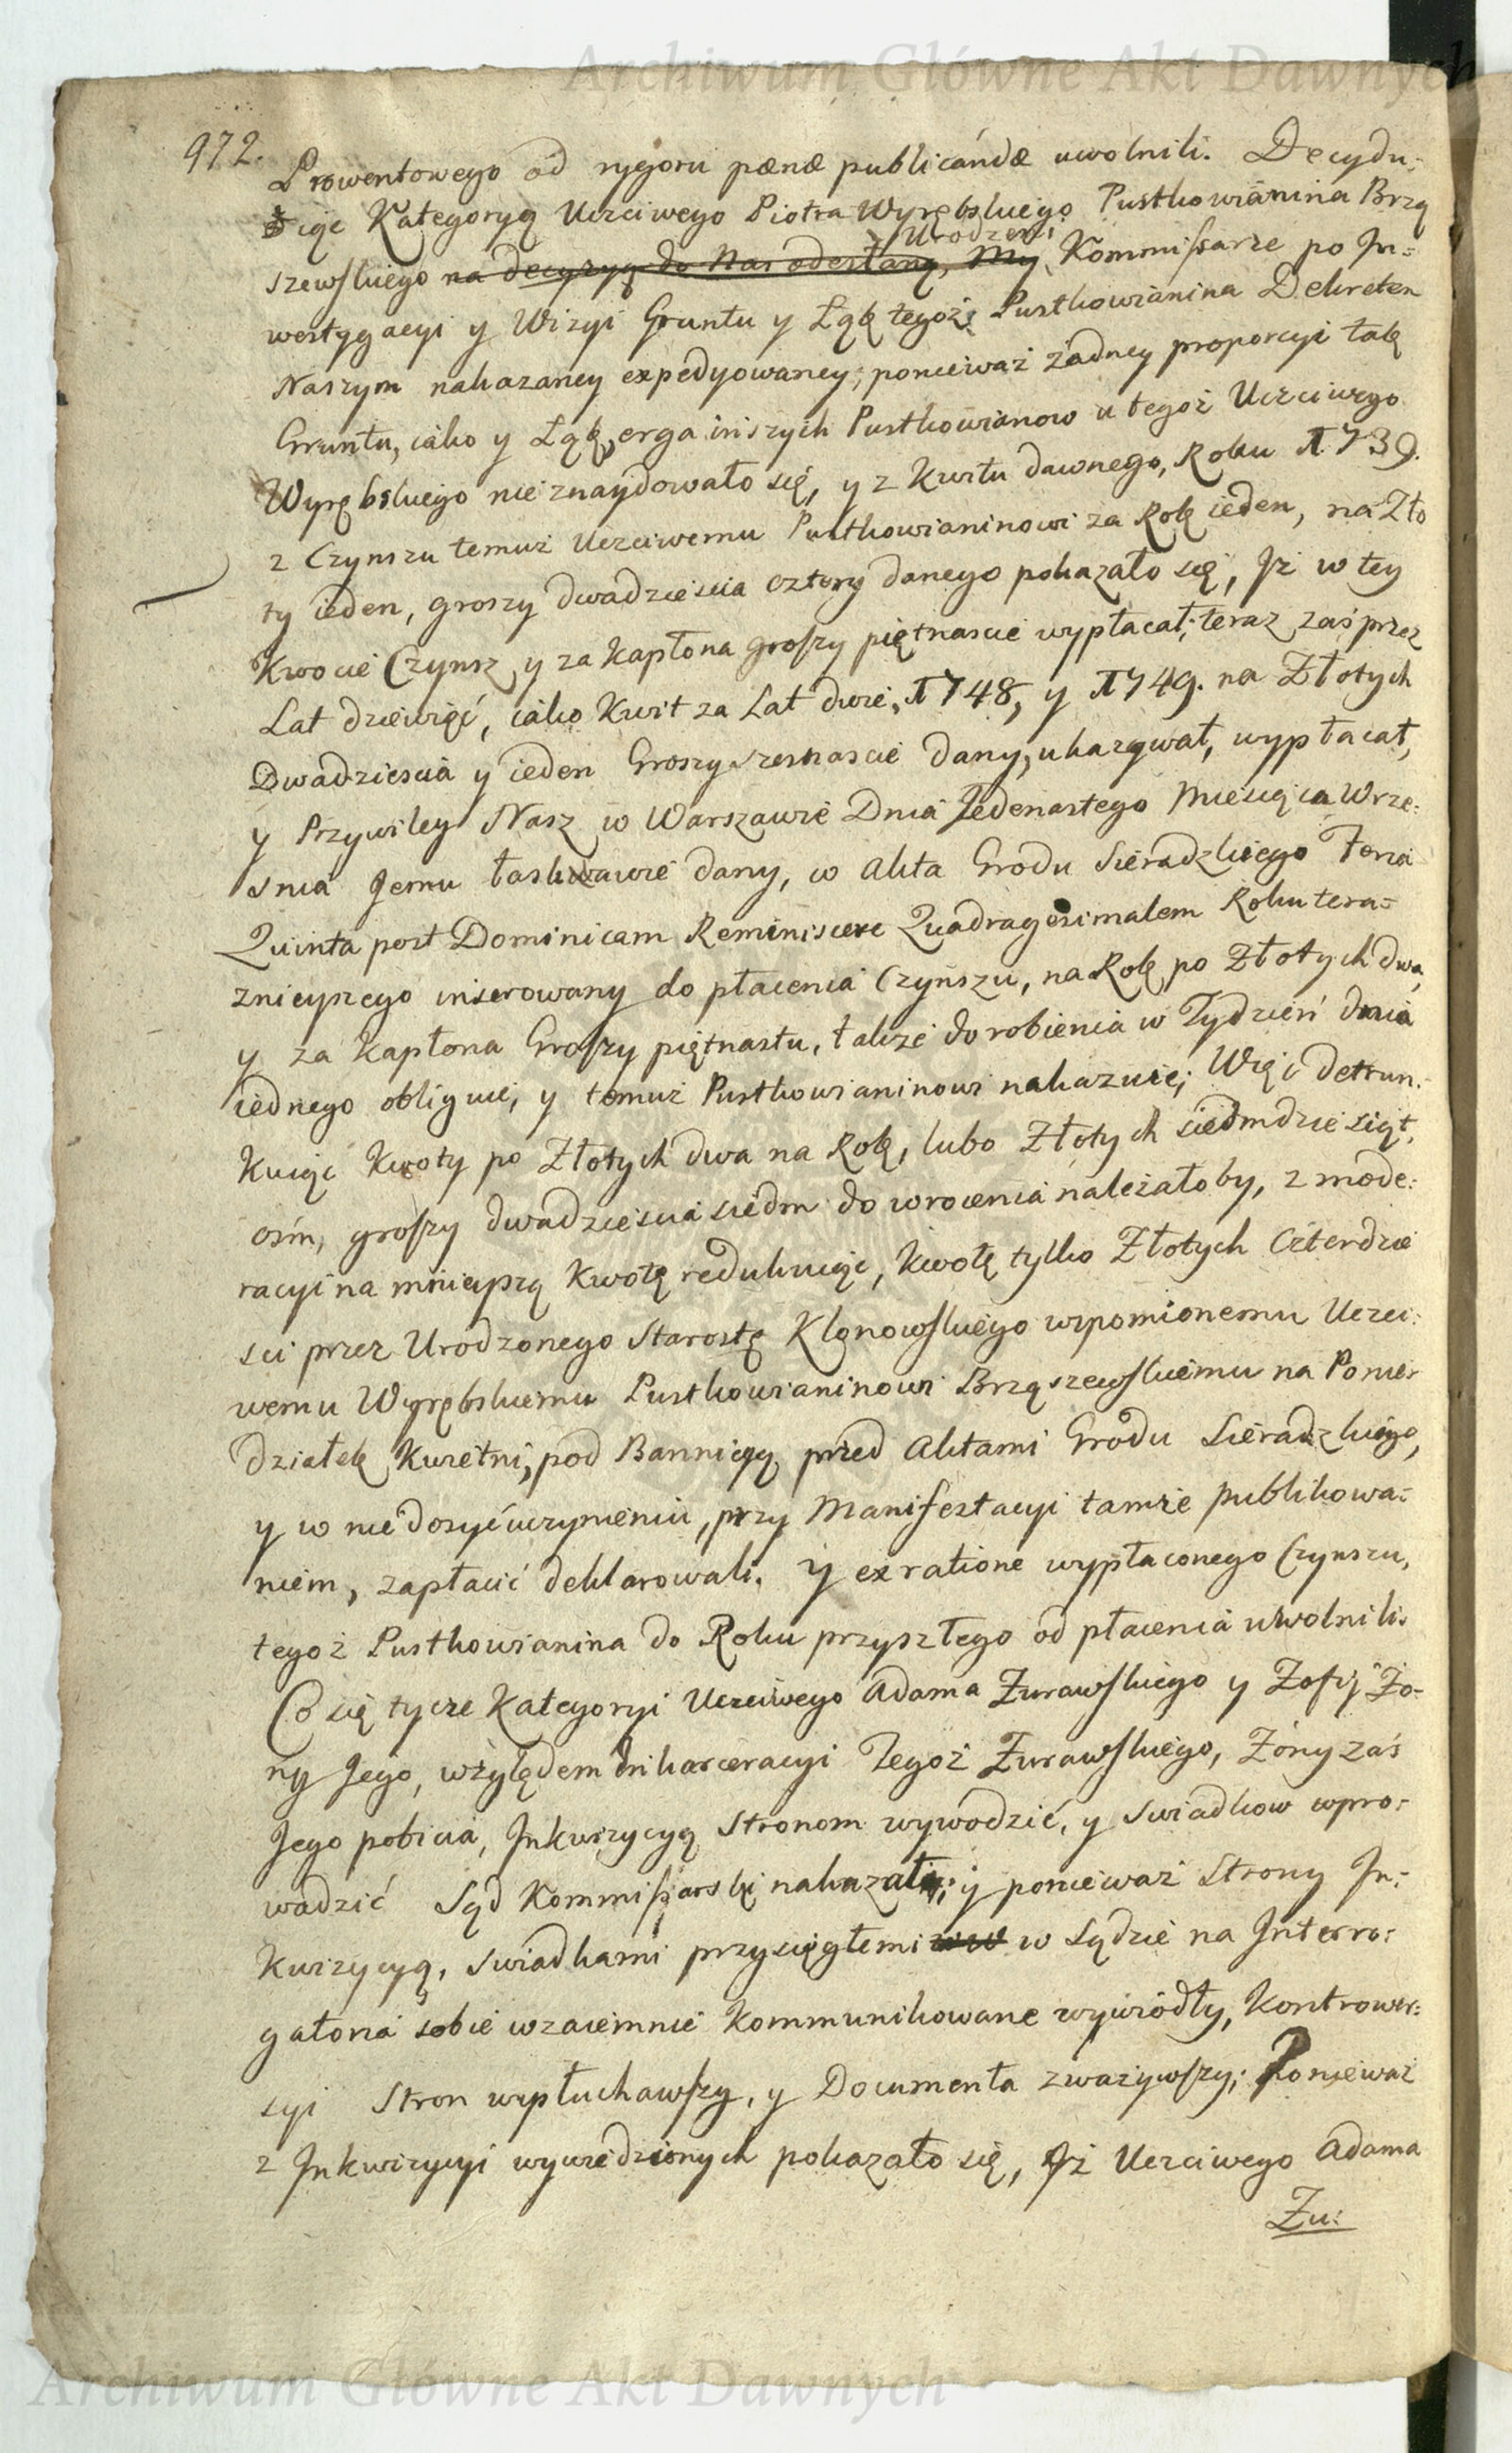 Archiwum Główne Akt Dawnych
972.
Prowentowego od rygoru pænæ publicándæ uwolnili. Decydu:
iąc Kategoryą Uczciwego Piotra Wyrębskiego Pustkowiánina Brzą
Urodzeni
szewskiego na decyzyą do Nas odesłaną, My Kommissarze po In=
westygacyi y Wizyi Gruntu y Łąk tegoż Pustkowianina Dekretem
Naszym nakazaney expedyowaney; ponieważ żadney proporcyi tak
Gruntu, iako y Łąk, erga inszych Pustkowianow u tegoż Uczciwego
Wyrębskiego nie znaydowało się, y z Kwitu dawnego, Roku 1739.
z Czynszu temuż Uczciwemu Pustkowianinowi za Rok ieden, na Zło
ty ieden, groszy dwadzieścia cztery danego pokazało się, Iż w tey
Kwocie Czynsz y za kapłona groszy piętnascie wypłacał; teraz zaś przez
Lat dziewięć, iako Kwit za Lat dwie, 1748, y 1749. na Złotych
Dwadziescia y ieden Groszy szesnascie dany, ukazywał, wypłacał,
y Przywiley Nasz w Warszawie Dnia Jedenastego Miesiąca Wrze:
snia Jemu łaskawie dany, w Akta Grodu Sieradzkiego Feria
Quinta post Dominicam Reminiscere Quadragesimalem Roku tera=
znieyszego inserowany do płacenia Czynszu, na Rok po Złotych dwa,
y za kapłona Groszy piętnastu, także do robienia w Tydzień dnia
iednego obliguie, y temuż Pustkowianinowi nakazuie; Więc detrun:
kuiąc Kwoty po Złotych dwa na Rok, lubo Złotych siedmdziesiąt,
ośm, groszy dwadziescia siedm do wrocenia należałoby, z mode:
racyi na mnieyszą Kwotę redukuiąc, kwotę tylko Złotych Czterdzie
sci przez Urodzonego Starostę Klonowskiego wspomionemu Uczci:
wemu Wyrębskiemu Pustkowianinowi Brząszewskiemu na Ponie
działek Kwietni, pod Bannicyą przed Aktami Grodu Sieradzkiego,
y w nie dosyć uczynieniu, przy Manifestacyi tamże publikowa:
niem, zapłacić deklarowali. Y ex ratione wypłaconego Czynszu,
tegoż Pustkowianina do Roku przyszłego od płacenia uwolnili.
Co się tycze Kategoryi Uczciwego Adama Żurawskiego y Zofij Żo-
ny Jego, względem Inkarceracyi Tegoż Żurawskiego, Żony zaś
Jego pobicia, Inkwizycyą Stronom wywodzić, y Swiadkow wpro:
wadzić Sąd Kommissarski nakazał; y ponieważ Strony In:
kwizycyą, swiadkami przysięgłemi w Sądzie na Interro:
gatoria sobie wzaiemnie Kommunikowane wywiodły, Kontrower:
syi Stron wysłuchawszy, y Documenta zważywszy; Ponieważ
z Inkwizycyi wywiedzionych pokazało się, Iż Uczciwego Adama
Żu:
Archiwum Główne Akt Dawnych